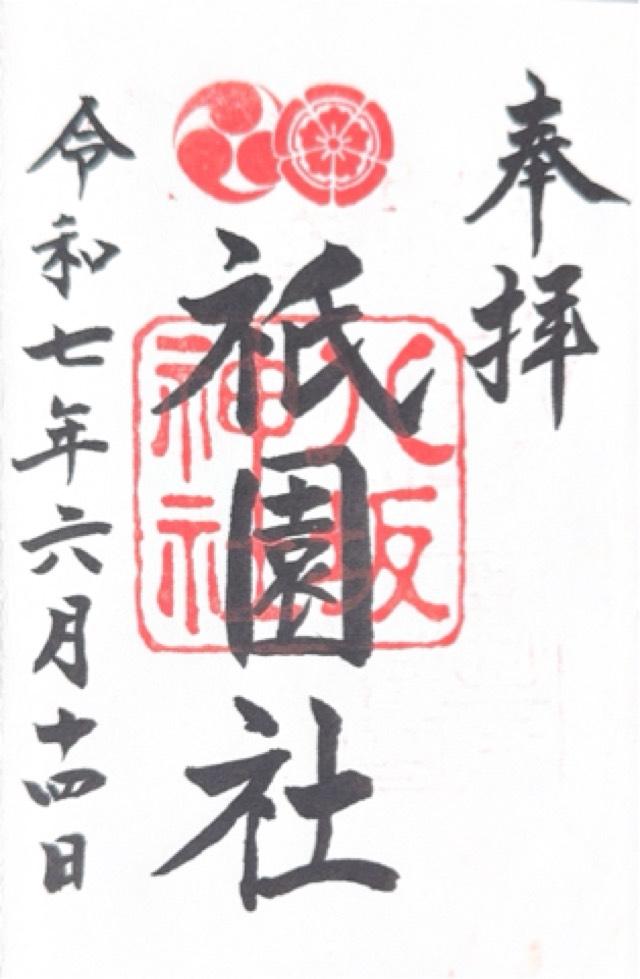 奉拝
祇園社
八坂
神社
令和七年六月十四日